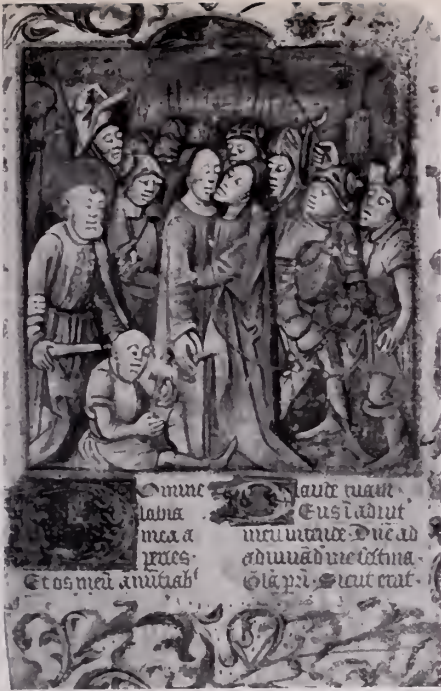 Domine
labia
mea a
peries.
Et os meū anūtiab'
laudē tuam.
Deus ī adiut
meū intende. Dn̄e ad
adiuuād me festina.
Glā pri. Sicut erat.